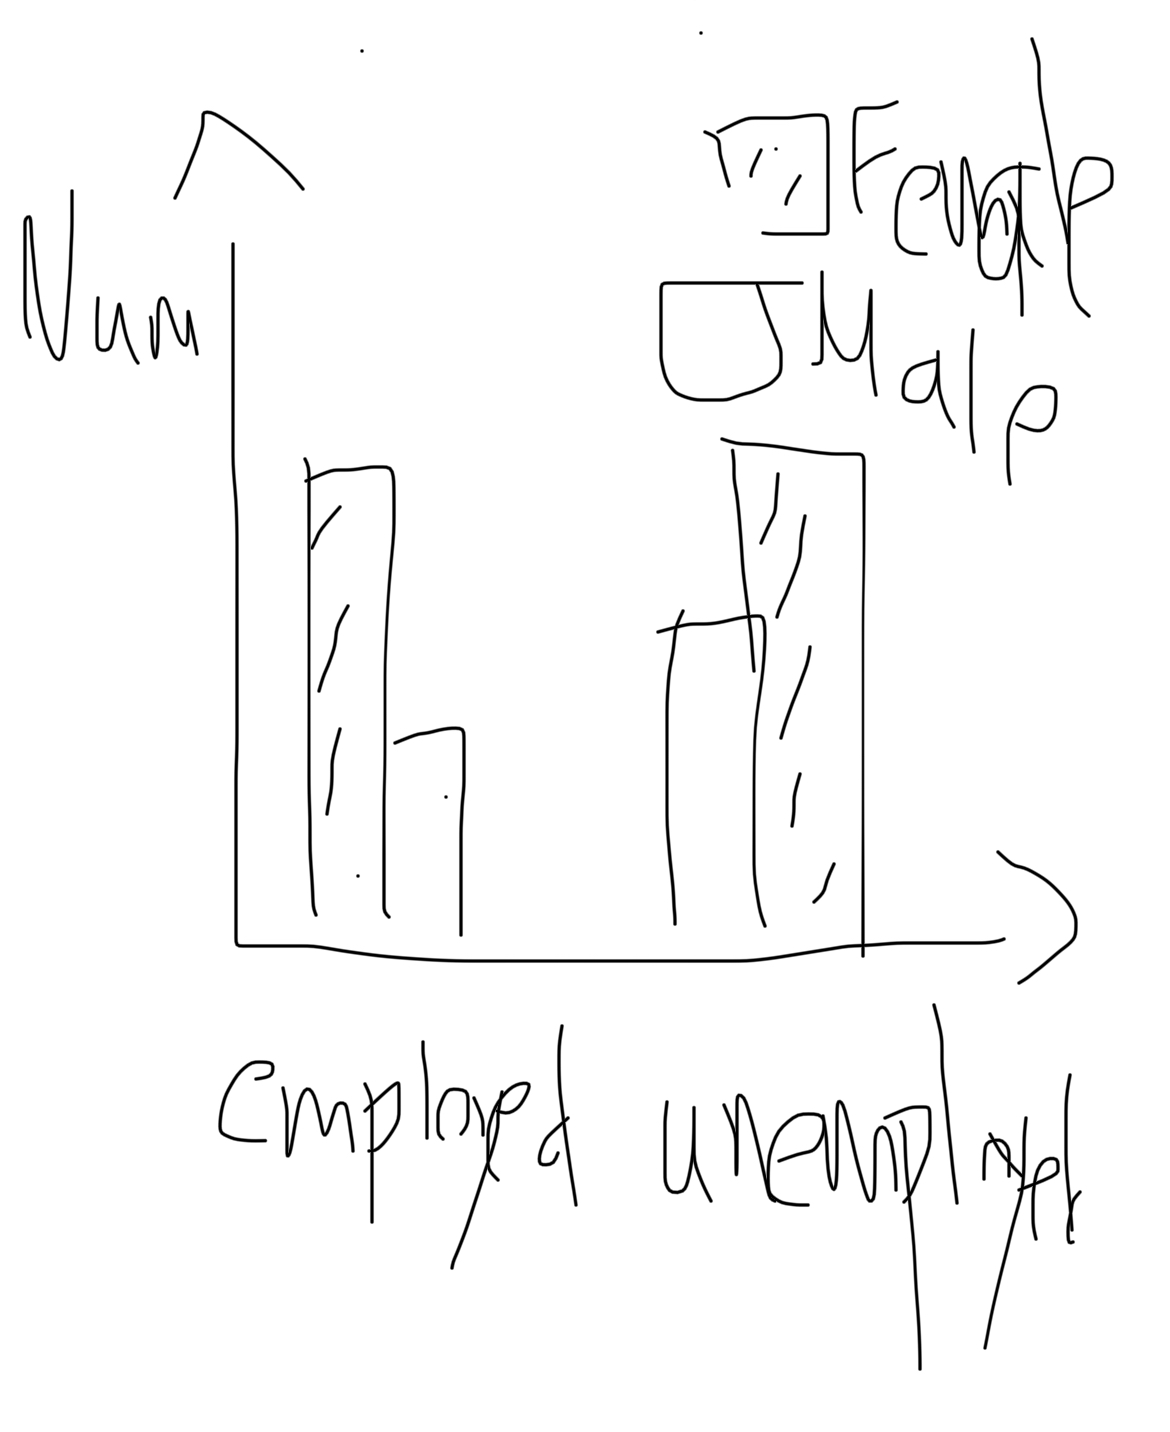 Female
Num
Male
employed unemployed